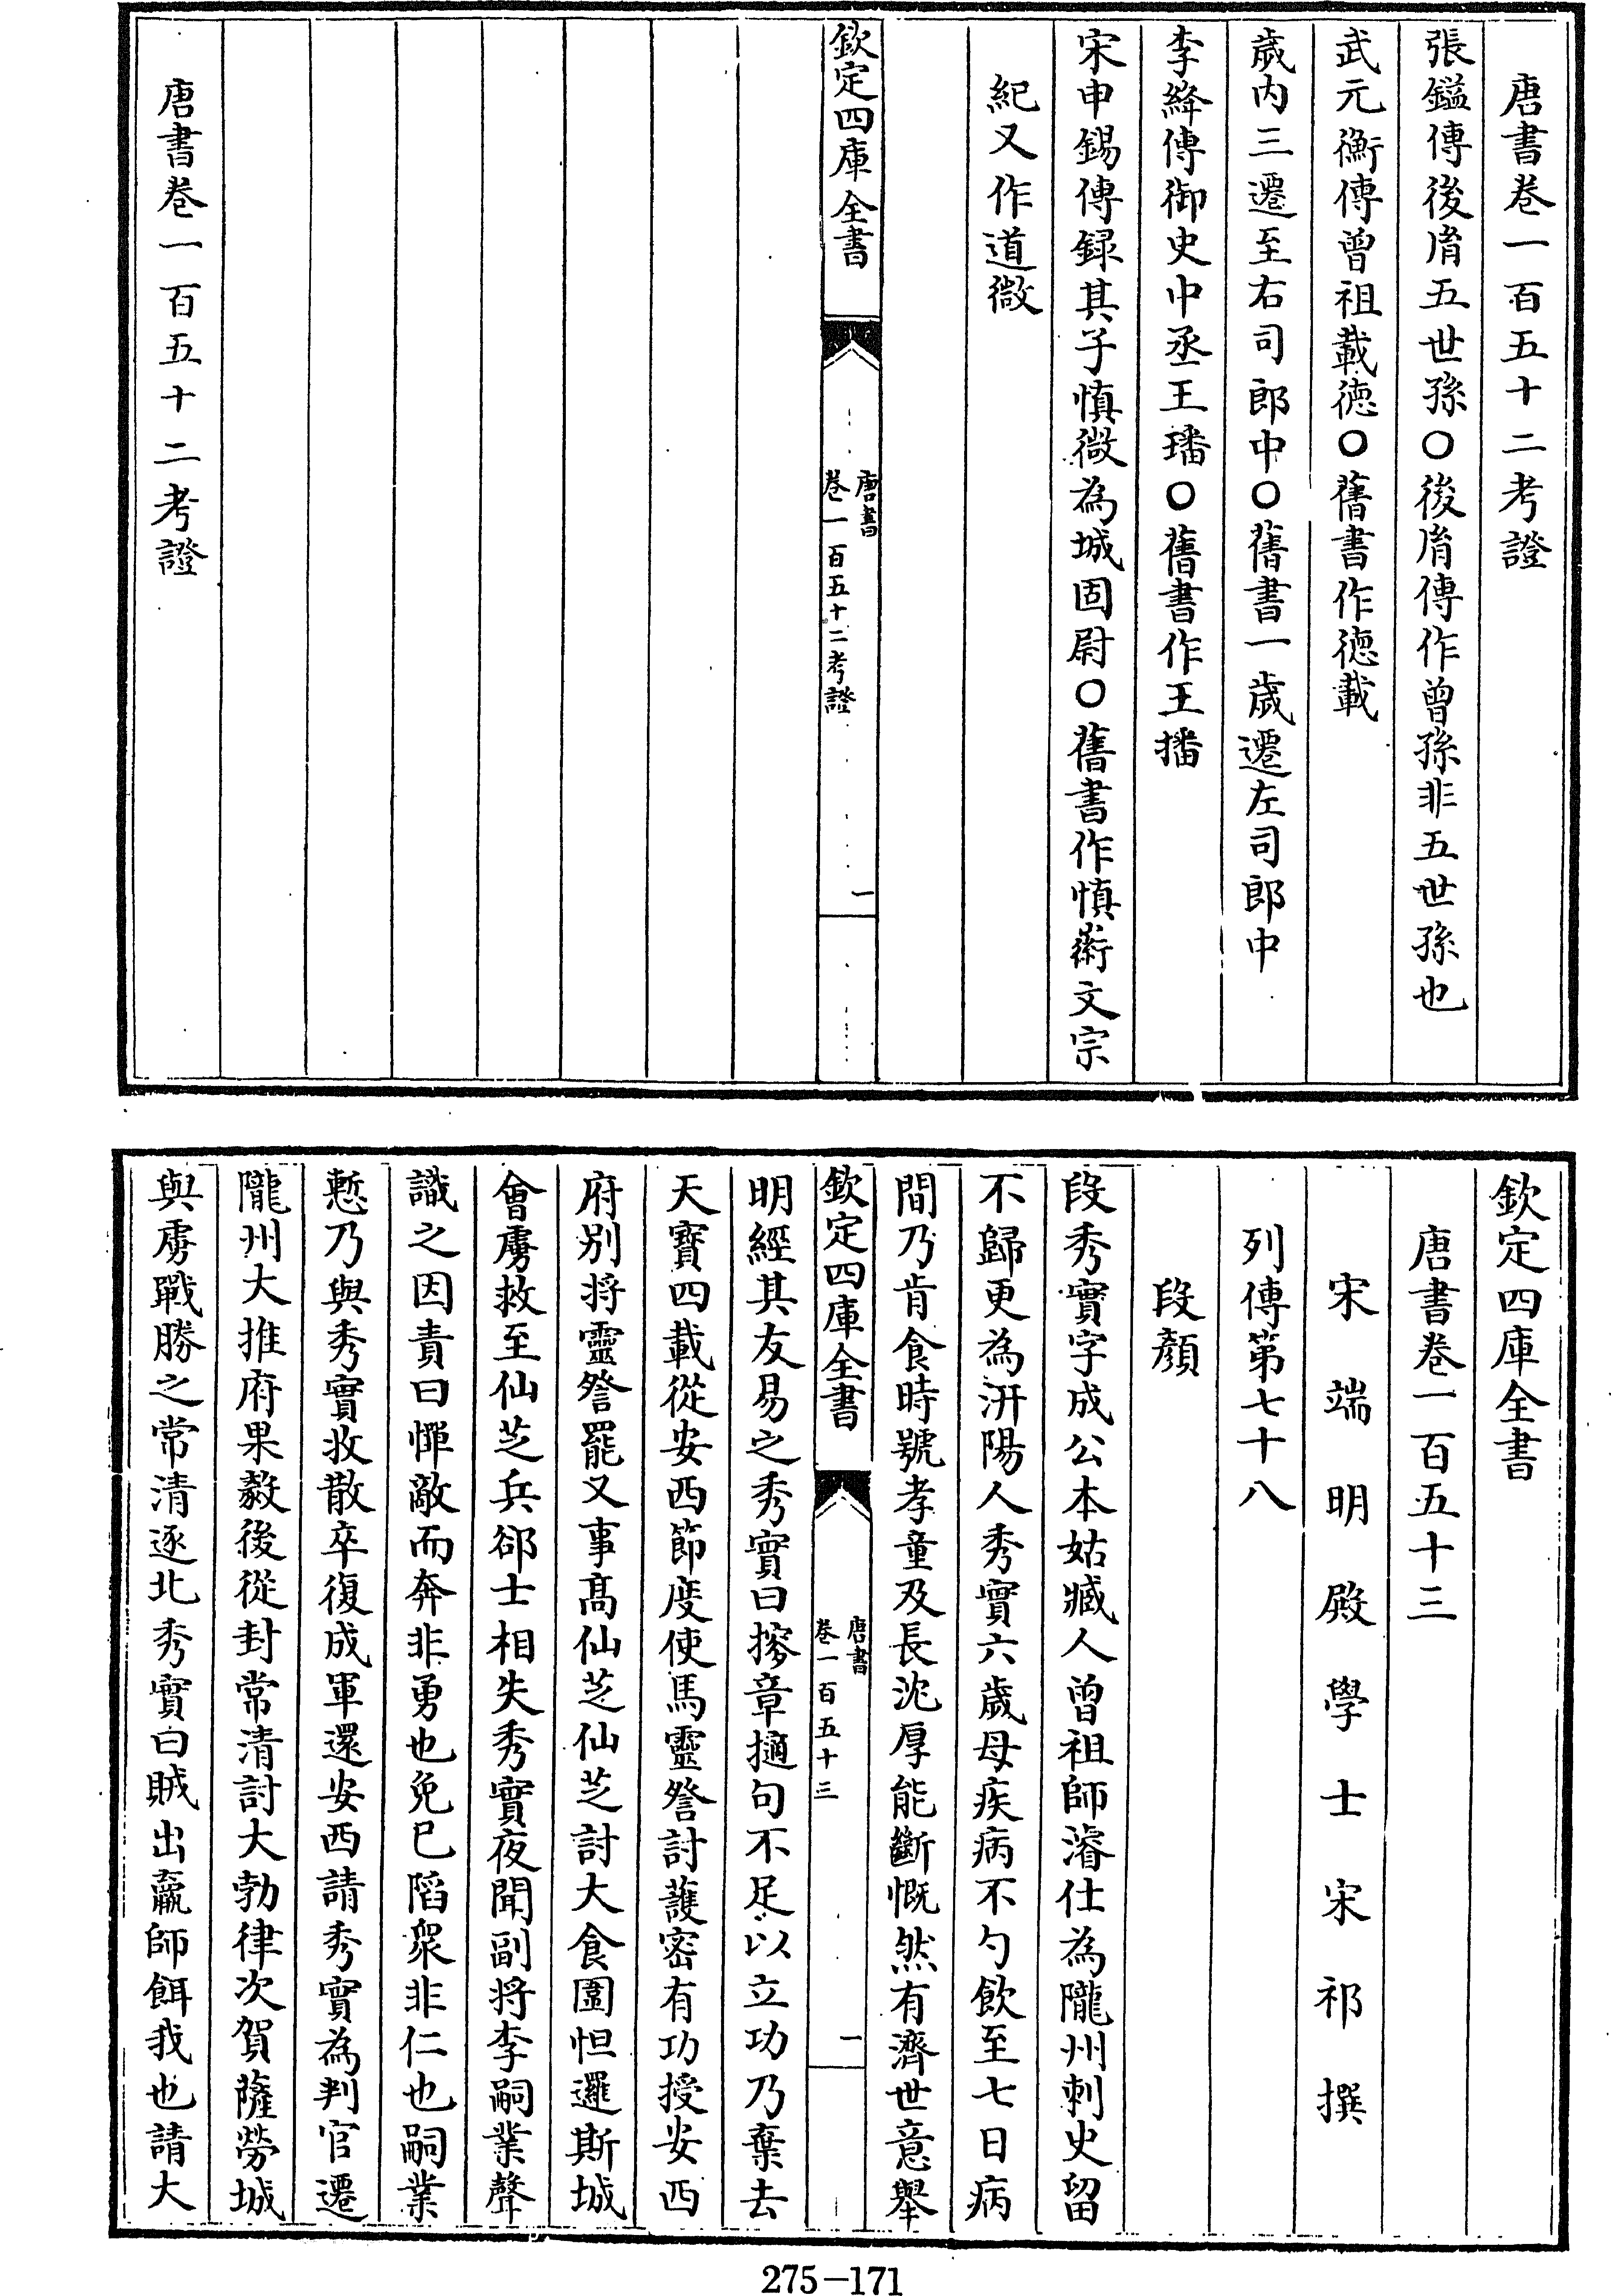 唐書卷一百五十二考證
張鎰傳後胤五世孫○後胤傳作曾孫非五世孫也
武元衡傳曾祖載德○舊書作德載
歲内三遷至右司郎中○舊書一歲遷左司郎中
李絳傳御史中丞王璠○舊書作王播
宋申錫傳録其子慎微為城固尉○舊書作慎㣲文宗
紀又作道微
欽定四庫全書
唐書
卷一百五十二考證
一
唐書卷一百五十二考證
欽定四庫全書
唐書卷一百五十三
宋端明殿學士宋祁撰
列傳第七十八
段顔
段秀實字成公本姑臧人曾祖師濬仕為隴州刺史留
不歸更為汧陽人秀實六歲母疾病不勺飲至七日病
間乃肯食時號孝童及長沈厚能斷慨然有濟世意舉
欽定四庫全書
唐書
卷一百五十三
一
明經其友易之秀實曰搜章擿句不足以立功乃棄去
天寶四載從安西節度使馬靈詧討護密有功授安西
府别將靈詧罷又事髙仙芝仙芝討大食圍怛邏斯城
會虜救至仙芝兵郤士相失秀實夜聞副將李嗣業聲
識之因責曰憚敵而奔非勇也免已陷衆非仁也嗣業
慙乃與秀實收散卒復成軍還安西請秀實為判官遷
隴州大推府果毅後從封常清討大勃律次賀薩勞城
與虜戰勝之常清逐北秀實曰賊出羸師餌我也請大
275-171